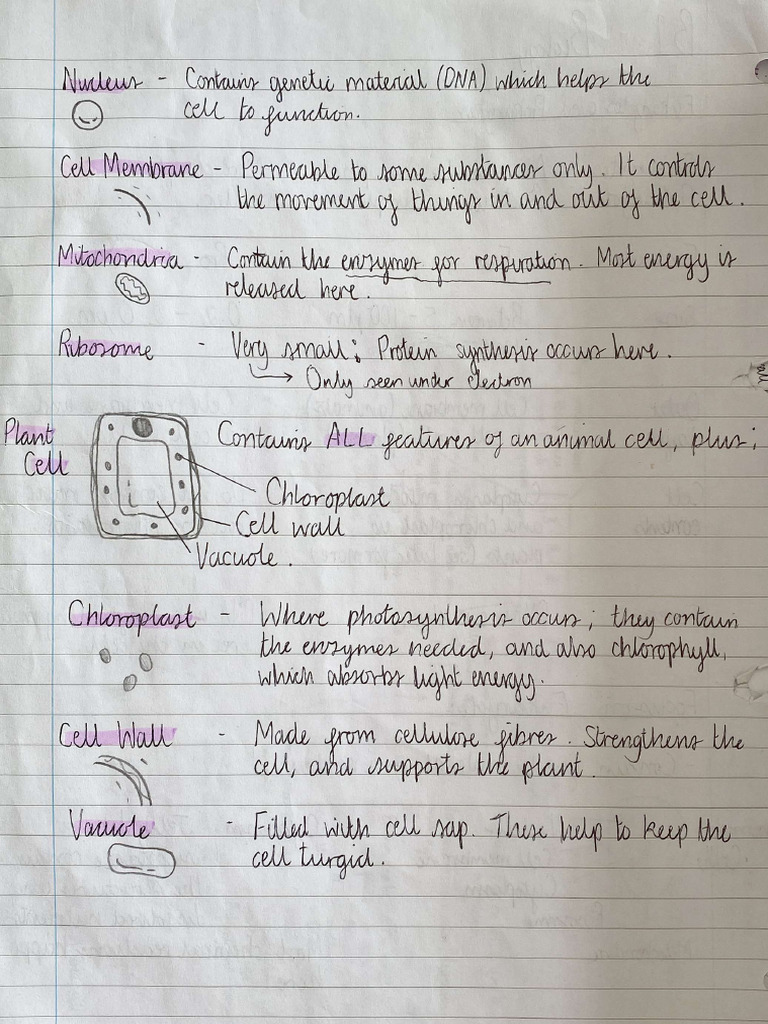 Nucleus - Contains genetic material (DNA) which helps the
cell to function.
Cell Membrane - Permeable to some substances only. It controls
the movement of things in and out of the cell.
Mitochondria - Contain the enzymes for respiration. Most energy is
released here.
Ribosome - Very small; Protein synthesis occurs here.
Only seen under electron
Plant
Cell
Contains ALL features of an animal cell, plus;
Chloroplast
Cell wall
Vacuole.
Chloroplast - Where photosynthesis occurs; they contain
the enzymes needed, and also chlorophyll,
which absorbs light energy.
Cell Wall - Made from cellulose fibres. Strengthens the
cell, and supports the plant.
Vacuole - Filled with cell sap. These help to keep the
cell turgid.